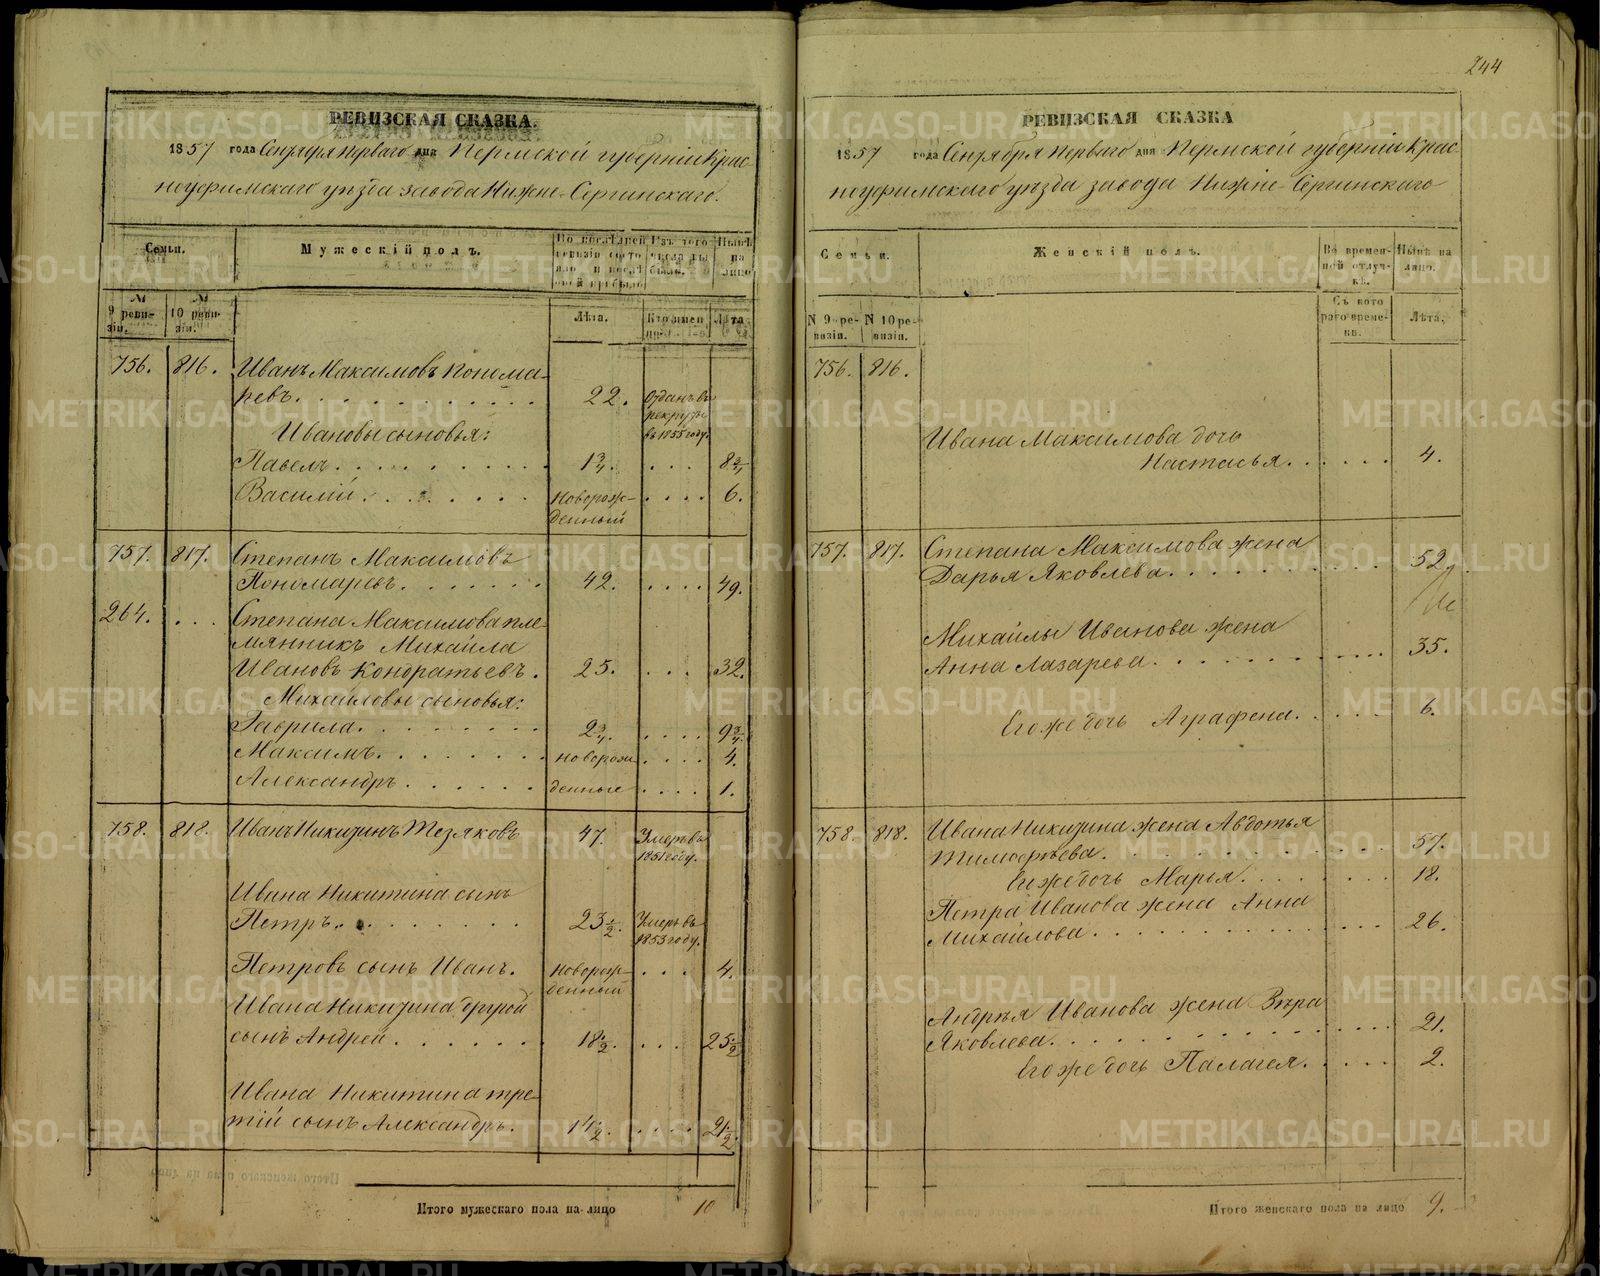 244
РЕВИЗСКАЯ СКАЗКА.
1857 года Сентября перваго дня Пермской губерніи Крас-
ноуфимскаго уѣзда завода Нижне-Сергинскаго.
Семьи.
Мужескій полъ.
По послѣдней ревизіи состояло и послѣ оной прибыло
Изъ того числа выбыло.
Нынѣ на лицо
№ 9 ревизіи.
№ 10 ревизіи.
Лѣта.
Когда именно
Лѣта
756. 816. Иванъ Максимовъ Понома-
ревъ. 22. Отданъ въ рекруты въ 1855 году.
Ивановы сыновья:
Павелъ. 1 3/4. 8 3/4
Василій. новорож-
денный 6.
757. 817. Степанъ Максимовъ
Пономаревъ. 42. 49.
264. Степана Максимова пле-
мянникъ Михайла
Ивановъ Кондратьевъ. 25. 32.
Михайловы сыновья:
Гаврила. 2 3/4. 9 3/4.
Максимъ. новорож 4.
Александръ. денные 1.
758. 818. Иванъ Никитинъ Тезяковъ 47. Умеръ въ 1851 году.
Ивана Никитина сынъ
Петръ. 23 1/2. Умеръ въ 1853 году.
Петровъ сынъ Иванъ. новорож-
денный 4.
Ивана Никитина другой
сынъ Андрей. 18 1/2. 25 1/2
Ивана Никитина тре-
тій сынъ Александръ. 14 1/2. 21 1/2.
Итого мужескаго пола на-лицо 10
РЕВИЗСКАЯ СКАЗКА
1857 года Сентября перваго дня Пермской губерніи Крас-
ноуфимскаго уѣзда завода Нижне-Сергинскаго
Семьи.
Женскій полъ.
Во временной отлучкѣ.
Нынѣ на лицо.
N 9 ревизіи.
N 10 ревизіи.
Съ котораго времени.
Лѣта.
756. 816.
Ивана Максимова дочь
Настасья. 4.
757. 817. Степана Максимова жена
Дарья Яковлева. 52.
Михайлы Иванова жена
Анна Лазарева. 35.
Его же дочь Аграфена. 6.
758. 818. Ивана Никитина жена Авдотья
Тимофѣева. 57.
Его же дочь Марья. 18.
Петра Иванова жена Анна
Михайлова. 26.
Андрѣя Иванова жена Вѣра
Яковлева. 21.
Его же дочь Палагея. 2.
Итого женскаго пола на лицо 9.
METRIKI.GASO-URAL.RU